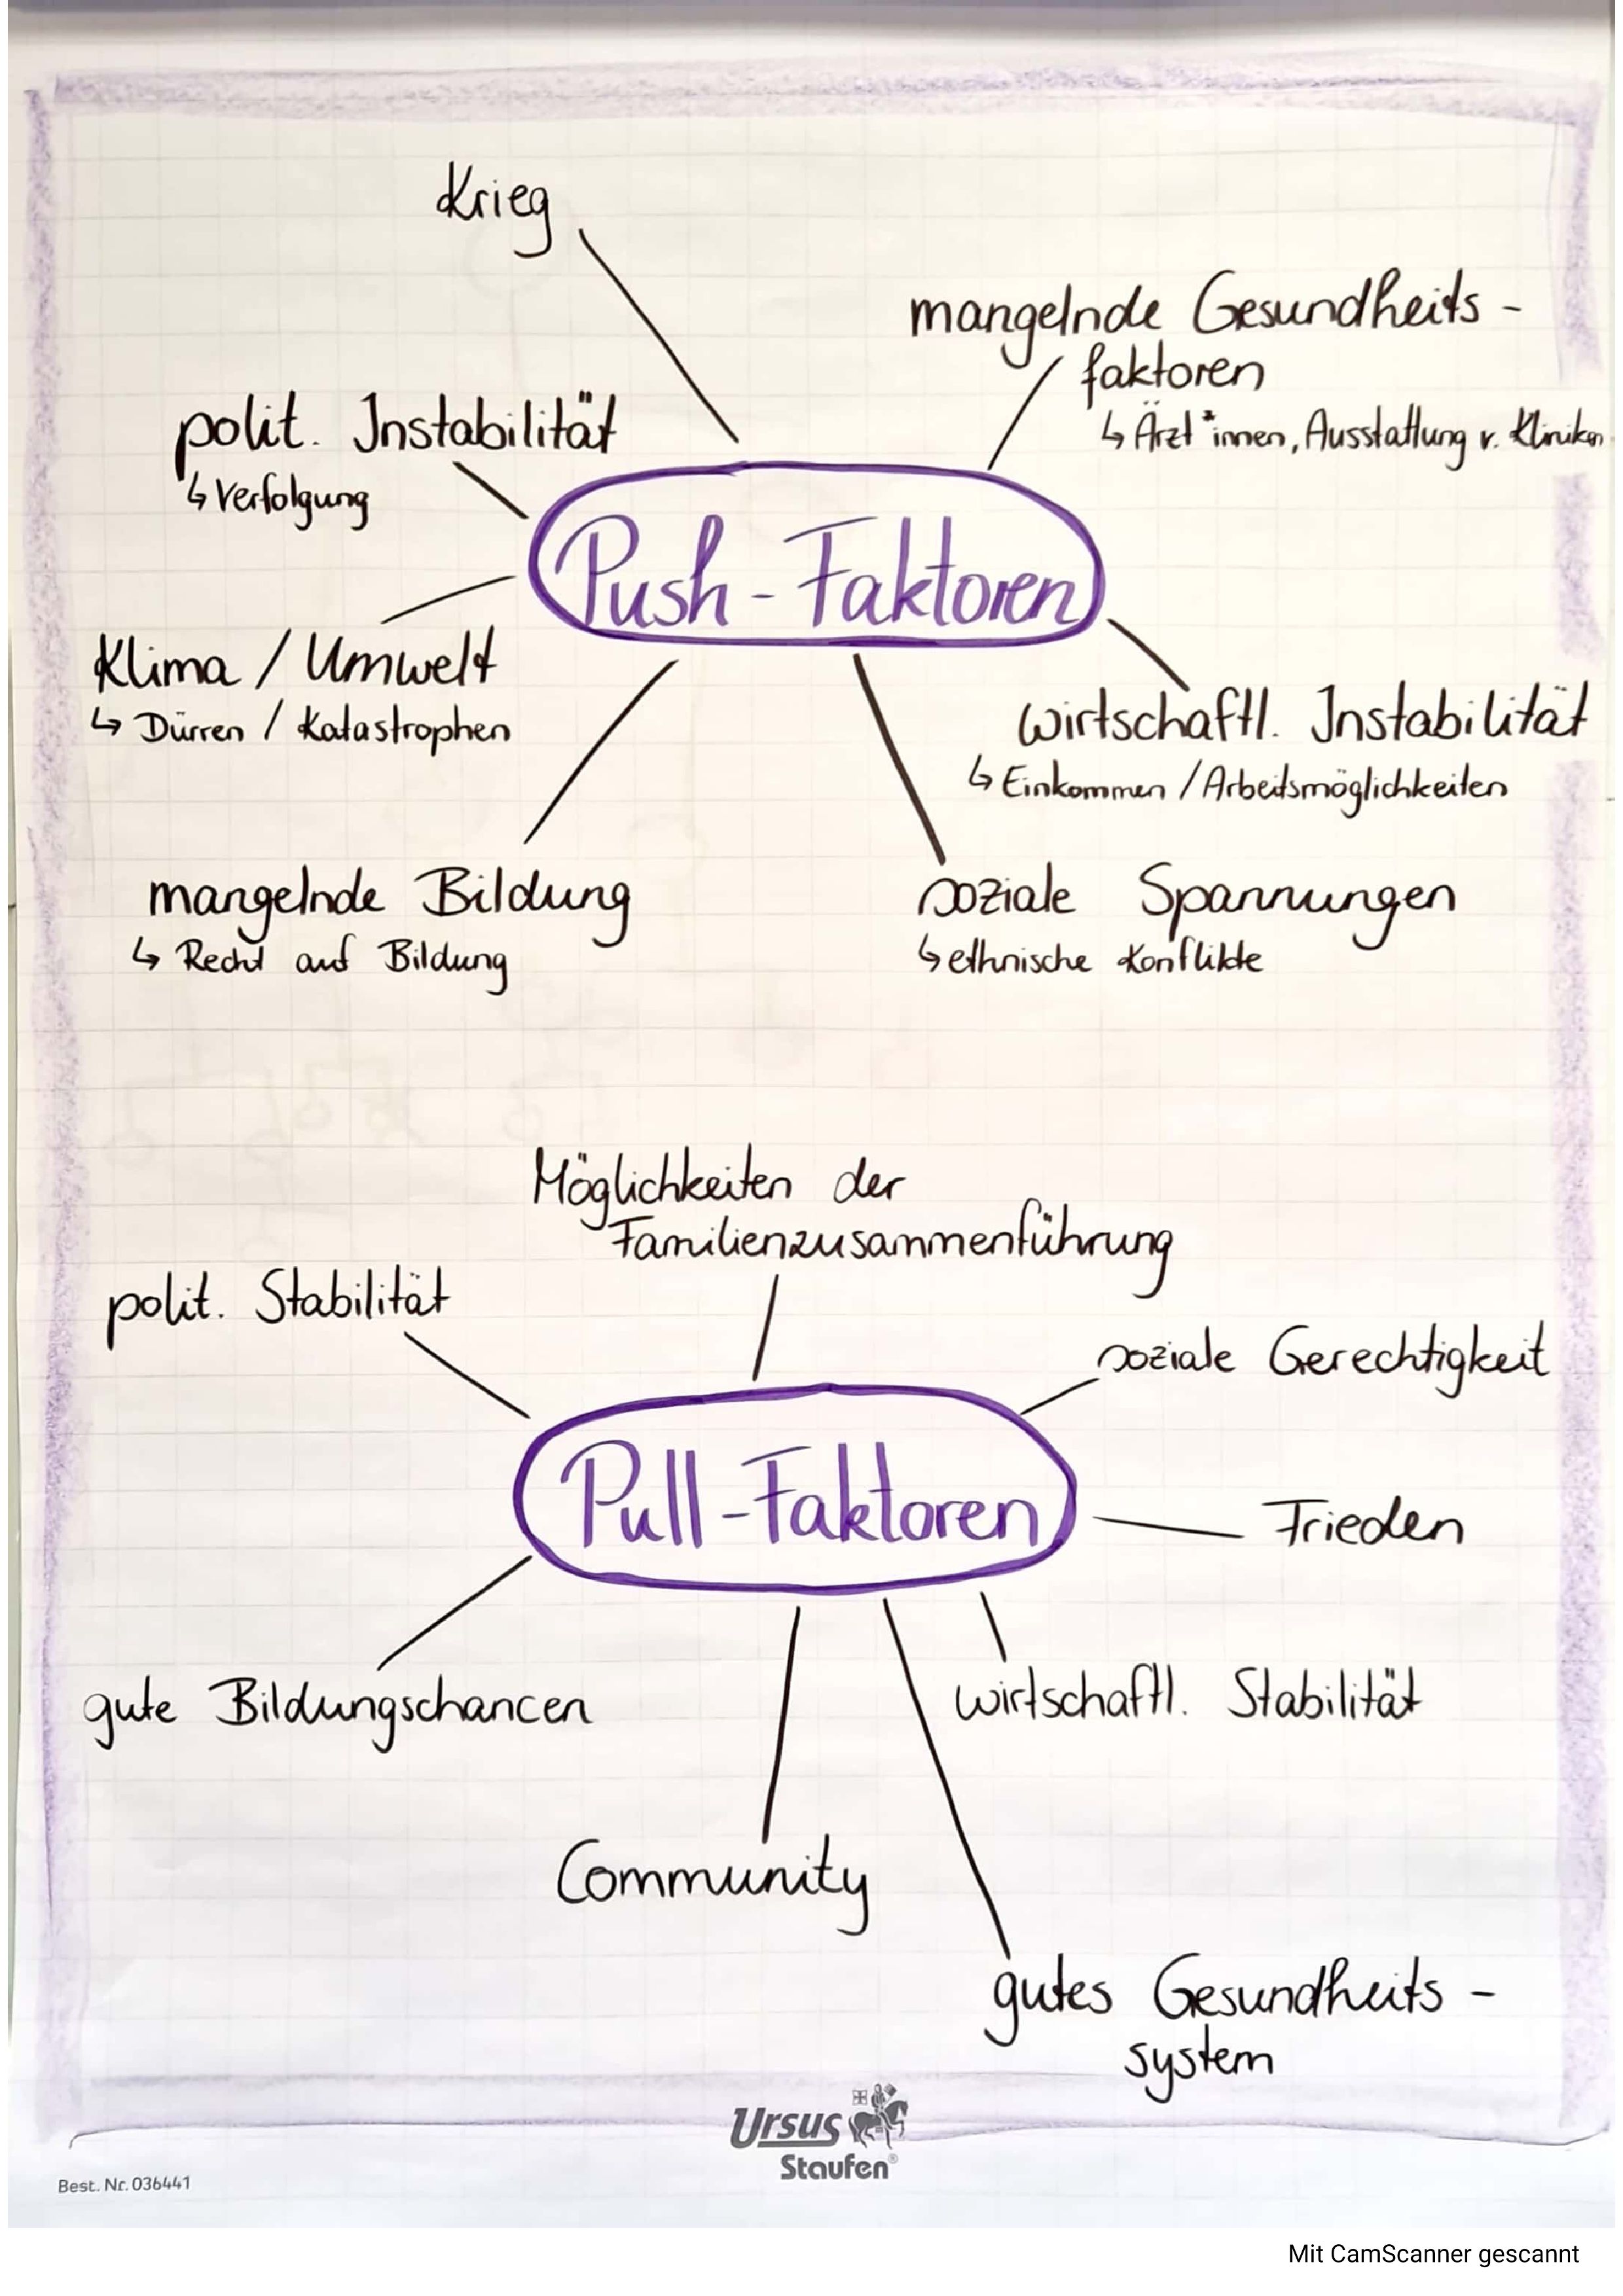 Krieg
mangelnde Gesundheits-
faktoren
↳ Ärzt*innen, Ausstattung v. Kliniken
polit. Instabilität
↳ Verfolgung
Push-Faktoren
Klima / Umwelt
↳ Dürren / Katastrophen
wirtschaftl. Instabilität
↳ Einkommen / Arbeitsmöglichkeiten
mangelnde Bildung
↳ Recht auf Bildung
soziale Spannungen
↳ ethnische Konflikte
Möglichkeiten der
Familienzusammenführung
polit. Stabilität
soziale Gerechtigkeit
Pull-Faktoren
Frieden
gute Bildungschancen
wirtschaftl. Stabilität
Community
gutes Gesundheits-
system
Ursus
Staufen®
Best. Nr. 036441
Mit CamScanner gescannt